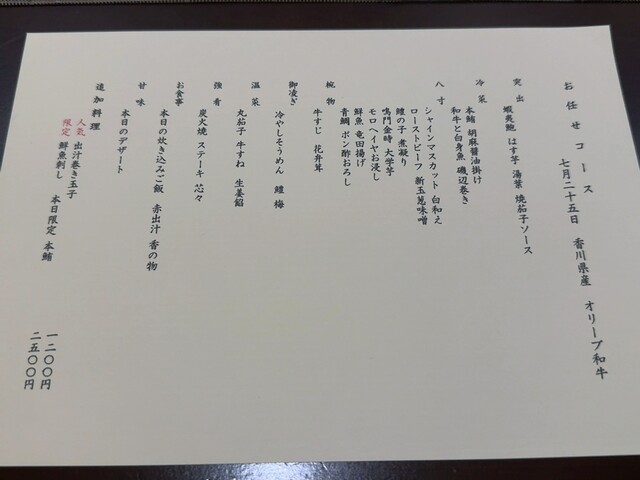 お任せコース 七月二十五日 香川県産 オリーブ和牛
突出
蝦夷鮑 はす芋 湯葉 焼茄子ソース
冷菜
本鮪 胡麻醤油掛け
和牛と白身魚 磯辺巻き
八寸
シャインマスカット 白和え
ローストビーフ 新玉葱味噌
鱧の子 煮凝り
鳴門金時 大学芋
モロヘイヤお浸し
鮮魚 竜田揚げ
青鯛 ポン酢おろし
椀物
牛すじ 花弁茸
御凌ぎ
冷やしそうめん 鱧 梅
温菜
丸茄子 牛すね 生姜餡
強肴
炭火焼 ステーキ 芯々
お食事
本日の炊き込みご飯 赤出汁 香の物
甘味
本日のデザート
追加料理
人気 出汁巻き玉子 一二〇〇円
限定 鮮魚刺し 本日限定 本鮪 二五〇〇円